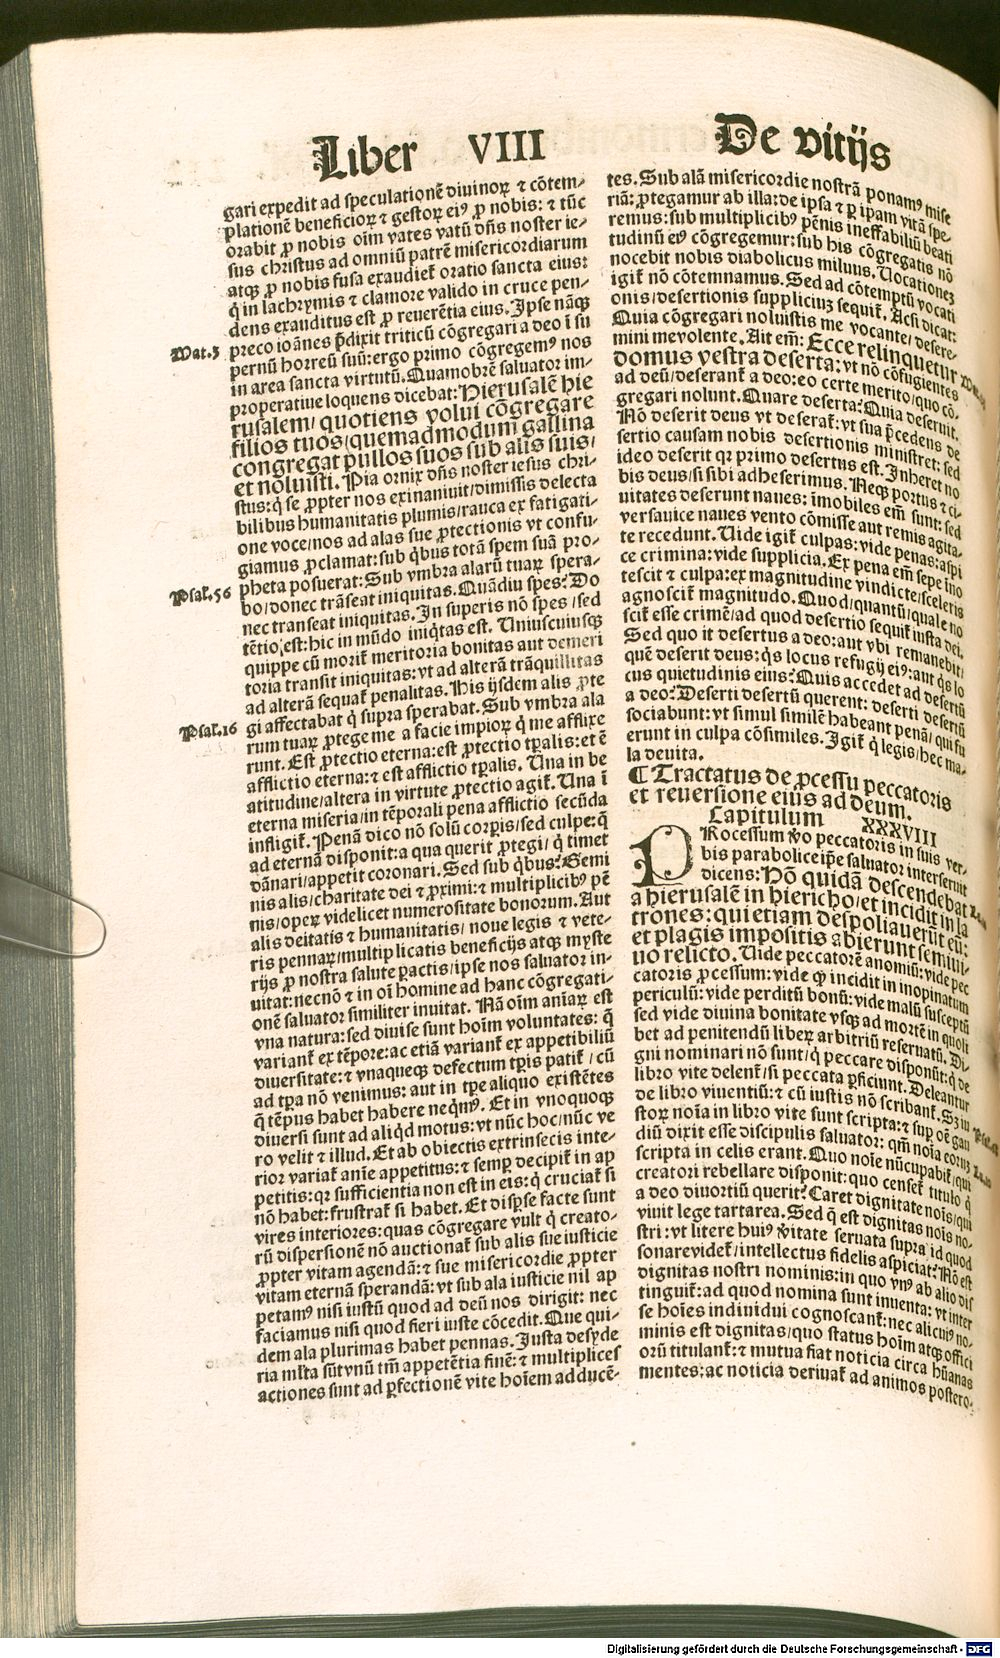 Liber VIII
De vitijs
gari expedit ad speculationē diuinoꝝ ⁊ cōtem-
platione beneficioꝝ ⁊ gestoꝝ ei⁹ ꝓ nobis: ⁊ tūc
orabit ꝓ nobis oīm vates vatū dn̄s noster ie-
sus christus ad omniū patrē misericordiarum
atqꝫ ꝓ nobis fusa exaudiet̉ oratio sancta eius:
q̇ in lachrymis ⁊ clamore valido in cruce pen-
dens exauditus est ꝓ reuerētia eius. Ipse nāqꝫ
Mat.3
preco ioānes p̄dixit triticū cōgregari a deo ī su
pernū horreū suū: ergo primo cōgregem⁹ nos
in area sancta virtutū. Quamobrē saluator im-
properatiue loquens dicebat: Hierusalē hie
rusalem/ quotiens volui cōgregare
filios tuos/quemadmodum gallina
congregat pullos suos sub alis suis/
et noluisti. Pia ornix dn̄s noster iesus chri-
stus: q̇ se ꝓpter nos exinaniuit/dimissis delecta
bilibus humanitatis plumis/rauca ex fatigati-
one voce/nos ad alas sue ꝓtectionis vt confu-
giamus ꝓclamat: sub q̇bus totā spem suā pro-
Psal.56
pheta posuerat: Sub vmbra alarū tuaꝝ spera-
bo/donec trāseat iniquitas. Quādiu spes? Do
nec transeat iniquitas. In superis nō spes /sed
tētio est: hic in mūdo iniq̇tas est. Uniuscuiusqꝫ
quippe cū morit̉ meritoria bonitas aut demeri
toria transit iniquitas: vt ad alterā trāquillitas
ad alterā sequat̉ penalitas. His ijsdem alis ꝓte
Psal.16
gi affectabat q̇ supra sperabat. Sub vmbra ala
rum tuaꝝ ꝓtege me a facie impioꝝ q̇ me afflixe
runt. Est ꝓtectio eterna: est ꝓtectio tp̄alis: et ē
afflictio eterna: ⁊ est afflictio tp̄alis. Una in be
atitudine/altera in virtute ꝓtectio agit̉. Una ī
eterna miseria/in tēporali pena afflictio secūda
infligit̉. Penā dico nō solū corpis/sed culpe: q̄
ad eternā disponit: a qua querit ꝓtegi/ q̇ timet
dānari/appetit coronari. Sed sub q̇bus? Gemi
nis alis/charitate dei ⁊ ꝓximi: ⁊ multiplicib⁹ pē
nis/opeꝝ videlicet numerositate bonorum. Aut
alis deitatis ⁊ humanitatis/ noue legis ⁊ vete-
ris pennaꝝ/multiplicatis beneficijs atqꝫ myste
rijs ꝓ nostra salute ꝑactis/ipse nos saluator in-
uitat: necnō ⁊ in oī homine ad hanc cōgregati-
onē saluator similiter inuitat. Nā oīm aīaꝝ est
vna natura: sed diuise sunt hoīm voluntates: q̄
variant̉ ex tēpore: ac etiā variant̉ ex appetibiliū
diuersitate: ⁊ vnaqueqꝫ defectum tp̄is patit̉ / cū
ad tp̄a nō venimus: aut in tp̄e aliquo existētes
q̄ tēpus habet habere neq̇m⁹. Et in vnoquoqꝫ
diuersi sunt ad aliq̇d motus: vt nūc hoc/nūc ve
ro velit ⁊ illud. Et ab obiectis extrinsecis inte-
rior variat̉ anīe appetitus: ⁊ semꝑ decipit̉ in ap
petitis: qꝛ sufficientia non est in eis: q̇ cruciat̉ si
nō habet: frustrat̉ si habet. Et disꝑse facte sunt
vires interiores: quas cōgregare vult q̇ creato-
rū dispersionē nō auctionat̉ sub alis sue iusticie
ꝓpter vitam agendā: ⁊ sue misericordie ꝓpter
vitam eternā sperandā: vt sub ala iusticie nil ap
petam⁹ nisi iustū quod ad deū nos dirigit: nec
faciamus nisi quod fieri iuste cōcedit. Que qui-
dem ala plurimas habet pennas. Iusta desyde
ria ml̄ta sūt vnū tm̄ appetētia finē: ⁊ multiplices
actiones sunt ad ꝑfectionē vite hoīem ad ducē-
tes. Sub alā misericordie nostrā ponam⁹ mise
riā: ꝓtegamur ab illa: de ipsa ⁊ ꝑ ipam vitā spe-
remus: sub multiplicib⁹ pēnis ineffabiliū beati
tudinū ei⁹ cōgregemur: sub his cōgregatis nō
nocebit nobis diabolicus miluus. Uocationeꝫ
igit̉ nō cōtemnamus. Sed ad cōtemptū vocati
onis/desertionis suppliciuꝫ sequit̉. Acsi dicat:
Quia cōgregari noluistis me vocante/ desere-
mini me volente. Ait em̄: Ecce relinquetur
domus vestra deserta: vt nō cōfugientes
ad deū/deserant̉ a deo: eo certe merito/quo cō-
gregari nolunt. Quare deserta? Quia deseruit.
Nō deserit deus vt deserat̉: vt sua p̄cedens de
sertio causam nobis desertionis ministret: sed
ideo deserit qꝛ primo desertus est. Inheret no
bis deus/si sibi adheserimus. Neqꝫ portus ⁊ ci-
uitates deserunt naues: īmobiles em̄ sunt: sed
versauice naues vento cōmisse aut remis agita-
te recedunt. Uide igit̉ culpas: vide penas: aspi
ce crimina: vide supplicia. Ex pena em̄ sepe īno
tescit ⁊ culpa: ex magnitudine vindicte/sceleris
agnoscit̉ magnitudo. Quod/quantū/quale no
scit̉ esse crimē/ad quod desertio sequit̉ iusta dei.
Sed quo it desertus a deo: aut vbi remanebit/
quē deserit deus: q̇s locus refugij ei⁹: aut q̇s lo
cus quietudinis eius? Quis accedet ad desertū
a deo? Deserti desertū querent: deserti desertū
sociabunt: vt simul similē habeant penā/ qui fu
erunt in culpa cōsimiles. Igit̉ q̇ legis/hec ma-
la deuita.
¶ Tractatus de ꝓcessu peccatoris
et reuersione eius ad deum.
Capitulum XXXVIII
PRocessum ꝟo peccatoris in suis ver-
bis parabolice ip̄e saluator interseruit
dicens: Hō quidā descendebat
a hierusalē in hiericho/et incidit in la
trones: qui etiam despoliauerūt eū:
et plagis impositis abierunt semiui-
uo relicto. Uide peccatorē anomiū: vide pec
catoris ꝓcessum: vide ꝙ incidit in inopinatum
periculū: vide perditū bonū: vide malū susceptū
sed vide diuina bonitate vsqꝫ ad mortē in quoli
bet ad penitendū libeꝝ arbitriū reseruatū. Di-
gni nominari nō sunt/q̇ peccare disponūt: q̇ de
libro vite delent̉/si peccata ꝑficiunt. Deleantur
de libro viuentiū: ⁊ cū iustis nō scribant̉. Sꝫ iu
stoꝝ noīa in libro vite sunt scripta: ⁊ suꝑ oē gau
diū dixit esse discipulis saluator: qm̄ noīa eoruꝫ
scripta in celis erant. Quo noīe nūcupabit̉/qui
creatori rebellare disponit: quo censet̉ titulo q̇
a deo diuortiū querit? Caret dignitate noīs/qui
viuit lege tartarea. Sed q̄ est dignitas noīs no-
stri: vt litere hui⁹ ꝟitate seruata supra id quod
sonare videt̉/intellectus fidelis aspiciat? Nō est
dignitas nostri nominis: in quo vn⁹ ab alio dis
tinguit̉: ad quod nomina sunt inuenta: vt inter
se hoīes indiuidui cognoscant̉: nec alicui⁹ no-
minis est dignitas/quo status hoīm atqꝫ offici
orū titulant̉: ⁊ mutua fiat noticia circa hūanas
mentes: ac noticia deriuat̉ ad animos postero-
Digitalisierung gefördert durch die Deutsche Forschungsgemeinschaft - DFG